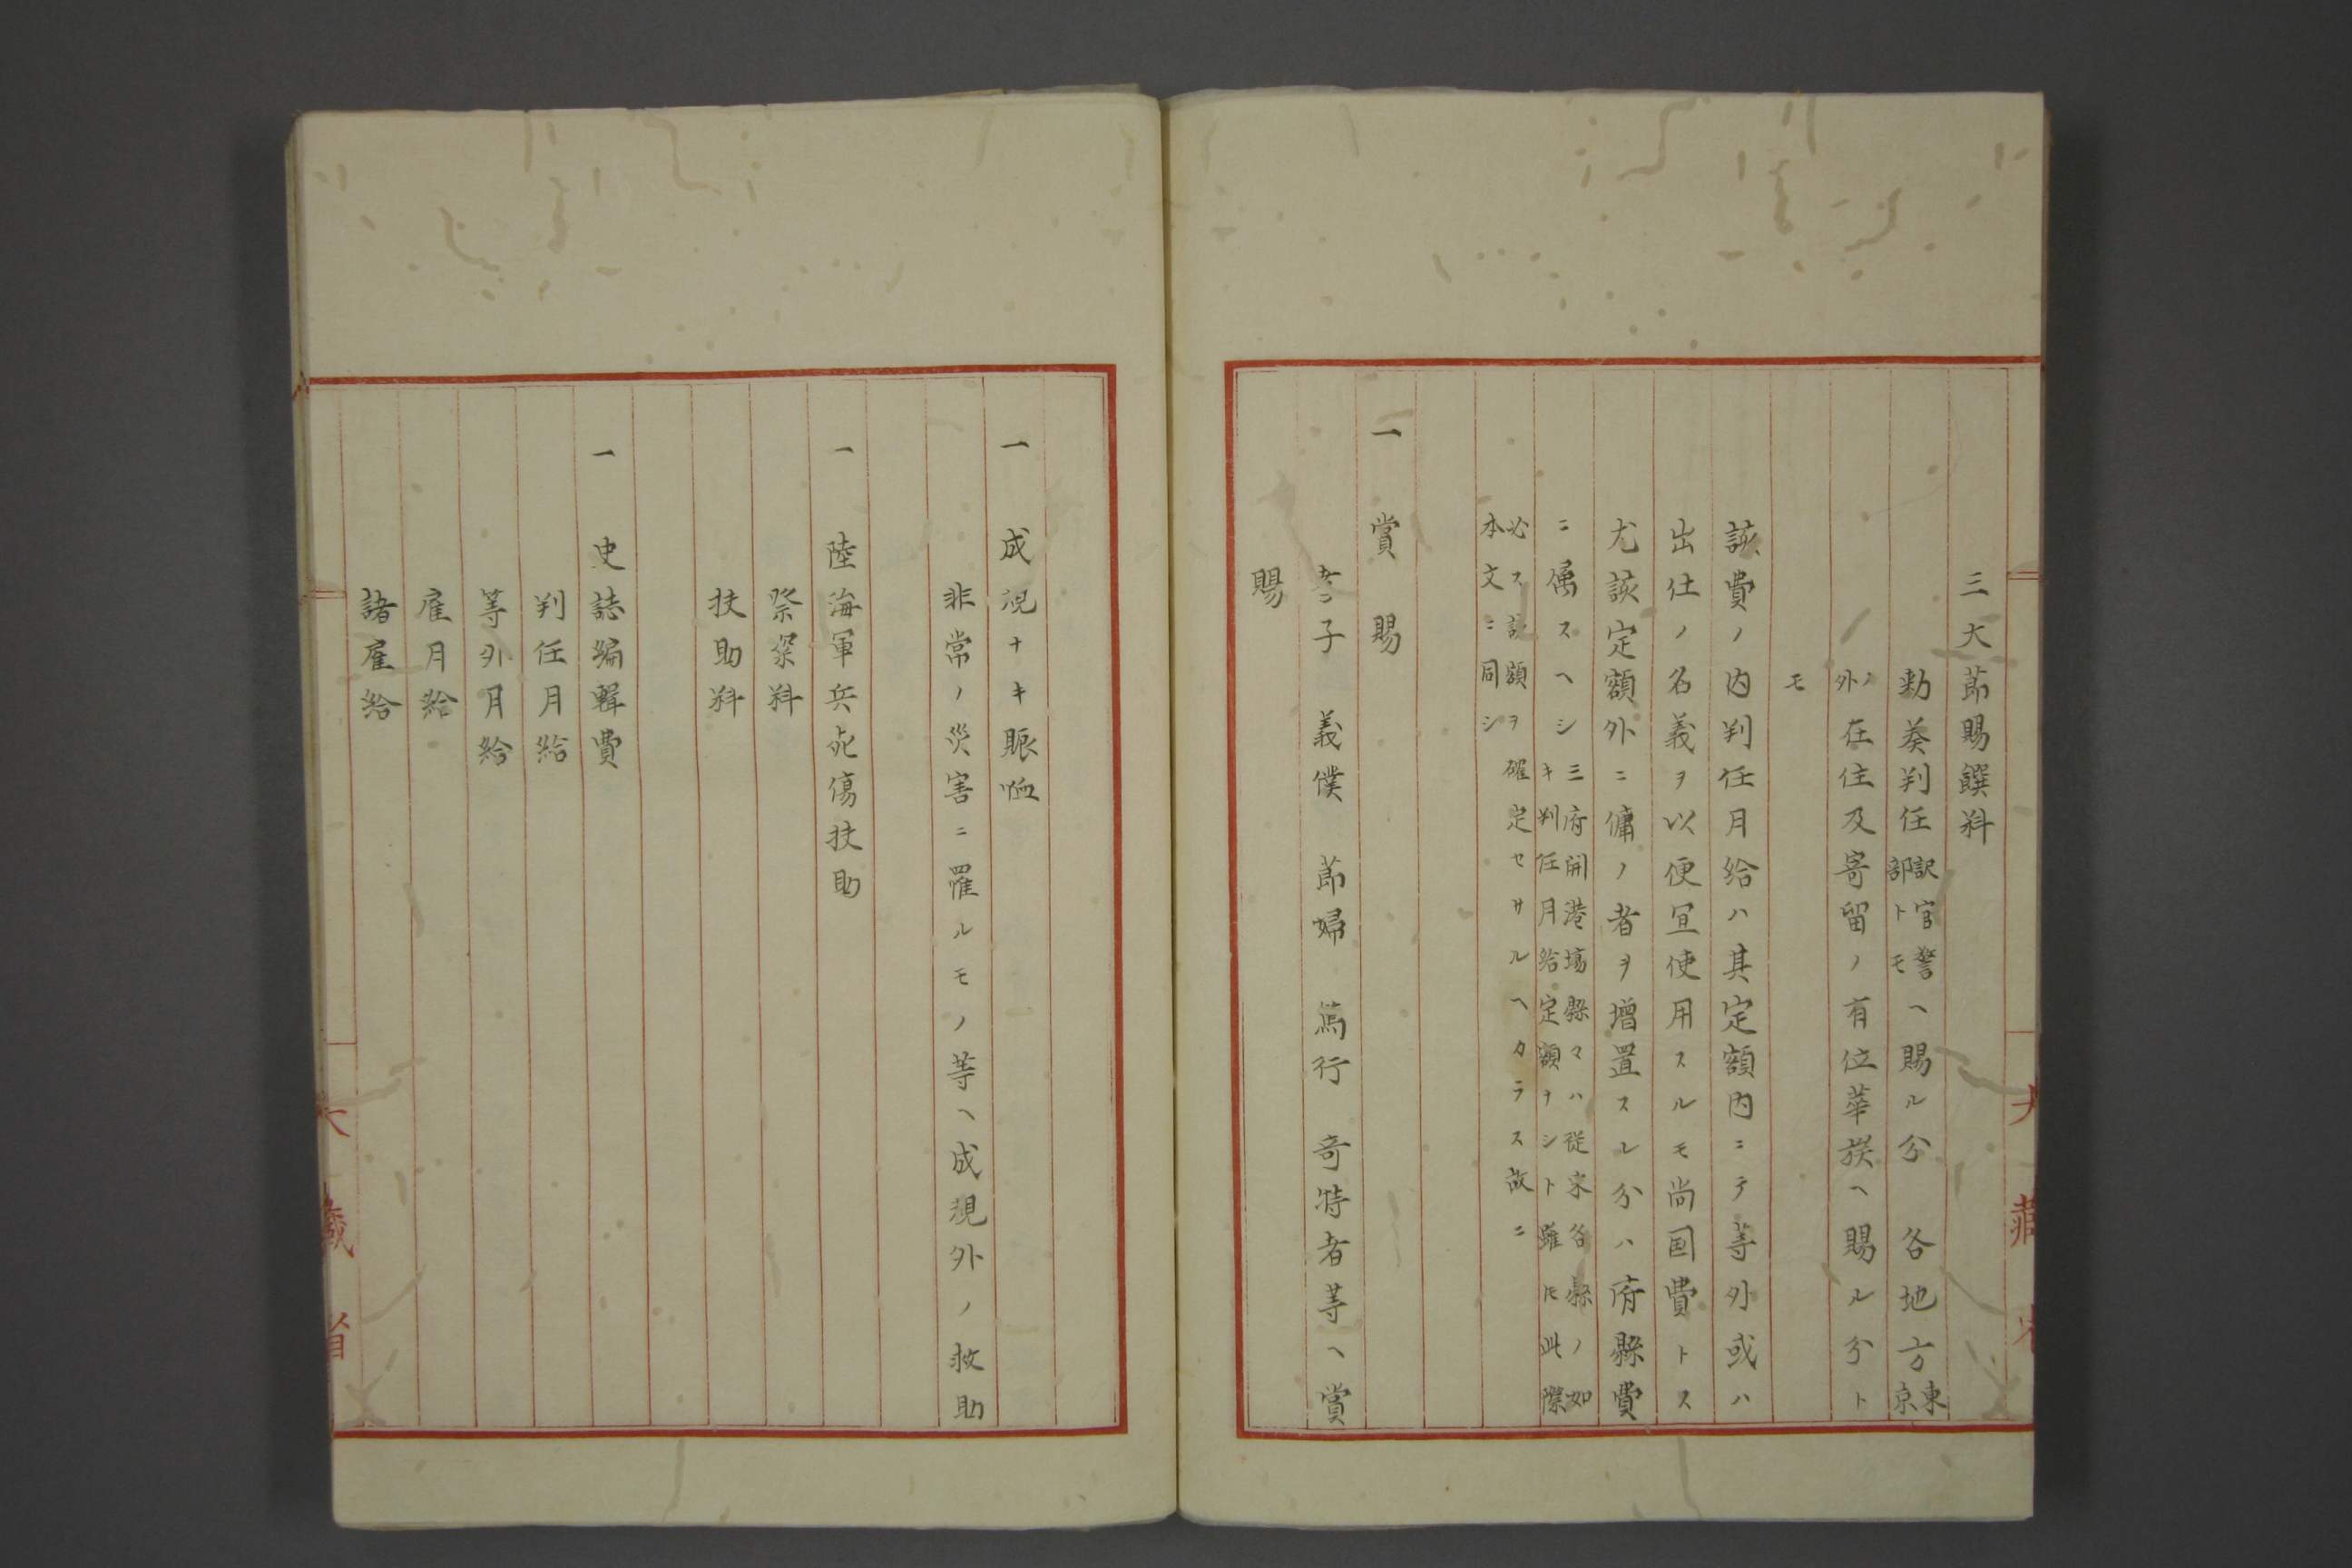 三大節賜饌料
勅奏判任訳官警部トモヘ賜ル分　各地方東京
外ノ在住及寄留ノ有位華族ヘ賜ル分ト
モ
該費ノ内判任月給ハ其定額内ニテ等外或ハ
出仕ノ名義ヲ以便宜使用スルモ尚国費トス
尤該定額外ニ傭ノ者ヲ増置スレ分ハ府縣費
ニ属スヘシ三府開港場縣マハ従来各縣ノ如
キ判任月給定額ナシト雖モ此際
必ス該額ヲ確定セサルヘカラス故ニ
本文ニ同シ
一　賞賜
孝子　義僕　節婦　篤行　奇特者等ヘ賞
賜
大藏省
一　成規ナキ賑恤
非常ノ災害ニ罹ルモノ等ヘ成規外ノ救助
一　陸海軍兵死傷扶助
祭粢料
扶助料
一　史誌編輯費
判任月給
等外月給
雇月給
諸雇給
大藏省